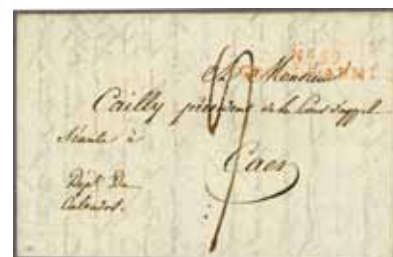 A Monsieur
Cailly président de la Cour d'appel
Séante à
Caen
Dépt. Du
Calvados.